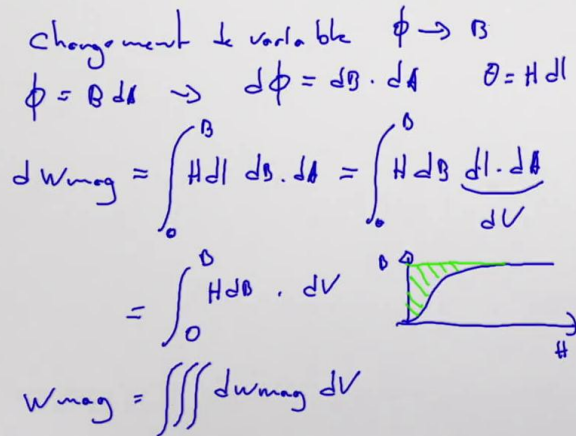 changement de variable ϕ → B
ϕ = B dA → dϕ = dB · dA θ = H dl
dWmag = ∫₀ᴮ H dl dB · dA = ∫₀ᴮ H dB dl · dA
dV
= ∫₀ᴮ H dB · dV
B
H
Wmag = ∭ dwmag dV